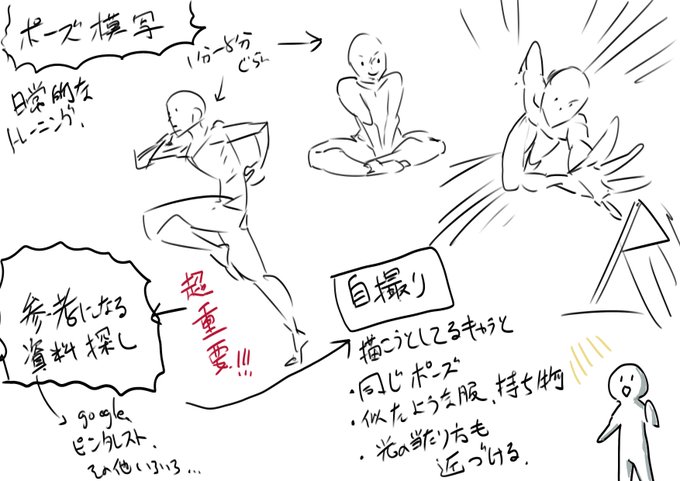 ポーズ模写
1分-5分
ぐらい
日常的な
トレーニング.
参考になる
資料探し
超重要!!!
google,
ピンタレスト、
その他いろいろ...
自撮り
描こうとしてるキャラと
・同じポーズ
・似たような服、持ち物
・光の当たり方も
近づける.